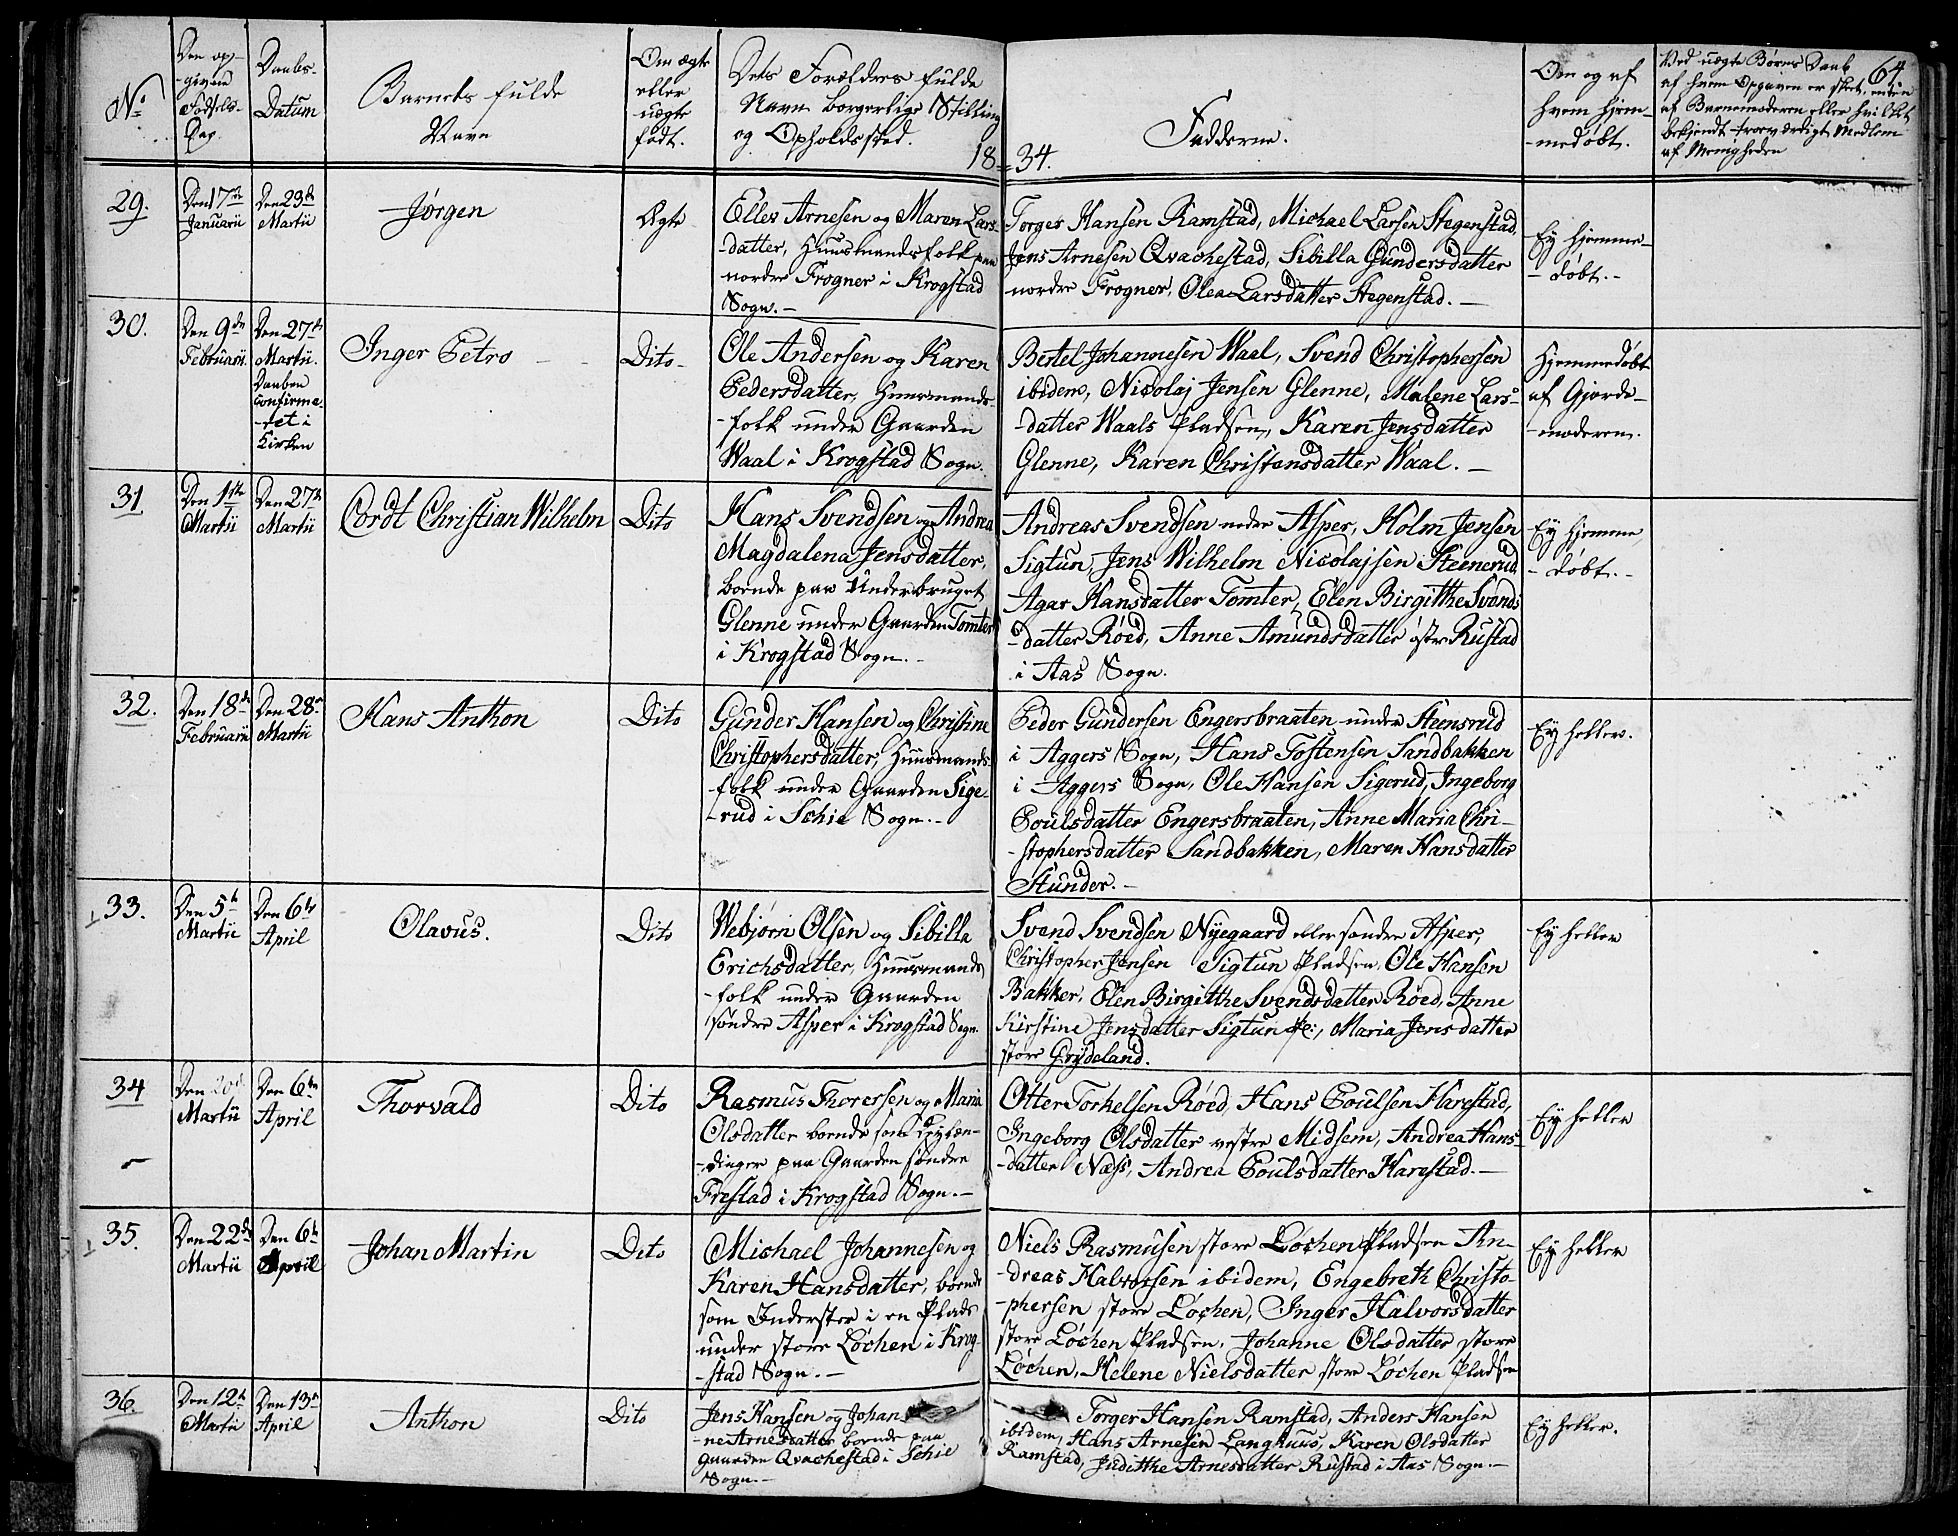 64.
No
Den op-
-givne
Fødsels-
Dag.
Daabs-
Datum
Barnets fulde
Navn
Om ægte
eller
uægte
født.
Dets Forældres fulde
Navn borgerlige Stilling
og Opholdssted.
18-34.
Fadderne.
Om og af
hvem hjem-
-medøbt.
Ved uægte Børns Daab
af hvem Opgaven er skeet, enten
af Barnemoderen eller hvilket
bekjendt troeværdigt Medlem
af Menigheden
29.
Den 17de
Januarii
Den 23de
Martii
Jørgen
Ægte
Elles Arnesen og Maren Lars-
-datter, Huusmandsfolk paa
nordre Frogner i Krogstad
Sogn.-
Torger Hansen Ramstad, Michael Larsen Hegenstad,
Jens Arnesen Qvachestad, Sibilla Gundersdatter
nordre Frogner, Olea Larsdatter Hegenstad.-
Ey hjemme-
-døbt.-
30.
Den 9de
Februarii
Den 27de
Martii.
Daaben
confirme-
-ret i
Kirken
Inger Petro
Dito-
Ole Andersen og Karen
Pedersdatter, Huusmands-
-folk under Gaarden
Waal i Krogstad Sogn.
Bertel Johannesen Waal, Svend Christophersen
ibidem, Nicolaj Jensen Glenne, Malene Lars-
-datter Waals Pladsen, Karen Jensdatter
Glenne, Karen Christensdatter Waal.-
Hjemmedøbt
af Gjorde-
-moderen.
31
Den 1ste
Martii
Den 27de
Martii
Cordt Christian Wilhelm
Dito
Hans Svendsen og Andrea
Magdalena Jensdatter,
boende paa Underbruget
Glenne under Gaarden Tomter
i Krogstad Sogn.-
Andreas Svendsen nedre Asper, Holm Jensen
Sigtun, Jens Wilhelm Nicolajsen Steenerud
Agar Hansdatter Tomter, Elen Birgitthe Svends
-datter Røed, Anne Amundsdatter østre Rustad
i Aas Sogn.
Ey hjemme
-døbt.-
32.
Den 18de
Februarii
Den 28de
Martii
Hans Anthon
Dito
Gunder Hansen og Christine
Christophersdatter, Huusmands-
-folk under Gaarden Sige-
-rud i Schie Sogn.-
Peder Gundersen Engersbraaten under Steensrud
i Aggers Sogn, Hans Tostensen Sandbakken
i Aggers Sogn, Ole Hansen Sigerud, Ingeborg
Poulsdatter Engersbraaten, Anne Maria Chri-
-stophersdatter Sandbakken, Maren Hansdatter
Stunder.-
Ey heller.
33.
Den 5te
Martii
Den 6te
April
Olavus.
Dito
Webjørn Olsen og Sibilla
Erichsdatter, Huusmands
-folk under Gaarden
søndre Asper i Krogstad Sogn.
Svend Svendsen Nyegaard eller søndre Asper,
Christopher Jensen Sigtun Pladsen, Ole Hansen
Bakker, Elen Birgitthe Svendsdatter Røed, Anne
Kirstine Jensdatter Sigtun Pl:, Maria Jensdatter
store Grydeland.
Ey heller
34
Den 20de
Martii
Den 6te
April
Thorvald
Dito
Rasmus Thorersen og Maria
Olsdatter boende som Pylæn-
-dinger paa Gaarden søndre
Frestad i Krogstad Sogn.-
Otter Torkelsen Røed, Hans Poulsen Harestad,
Ingeborg Olsdatter vestre Midsem, Andrea Hans-
-datter Næss, Andrea Poulsdatter Harestad.-
Ey heller
35.
Den 22de
Martii
Den 6te
April
Johan Martin
Dito
Michael Johannesen og
Karen Hansdatter, boende
som Inderster i en Plads
under store Løchen i Krog-
-stad Sogn.-
Niels Rasmusen store Løchen Pladsen An-
-dreas Halvorsen ibidem, Engebreth Christo-
-phersen store Løchen, Inger Halvorsdatter
store Løchen Pladsen, Johanne Olsdatter store
Løchen, Helene Nielsdatter store Løchen Pladsen
Ey heller
36.
Den 12te
Martii
Den 13de
April
Anthon
Dito
Jens Hansen og Johan
-ne Arnesdatter boende paa
Gaarden Qvachestad i Schie
Sogn.-
Torger Hansen Ramstad, Anders Hansen
ibidem, Hans Arnesen Langhuus, Karen Olsdatter
Ramstad, Judithe Arnesdatter Rustad i Aas Sogn.-
Ey heller.